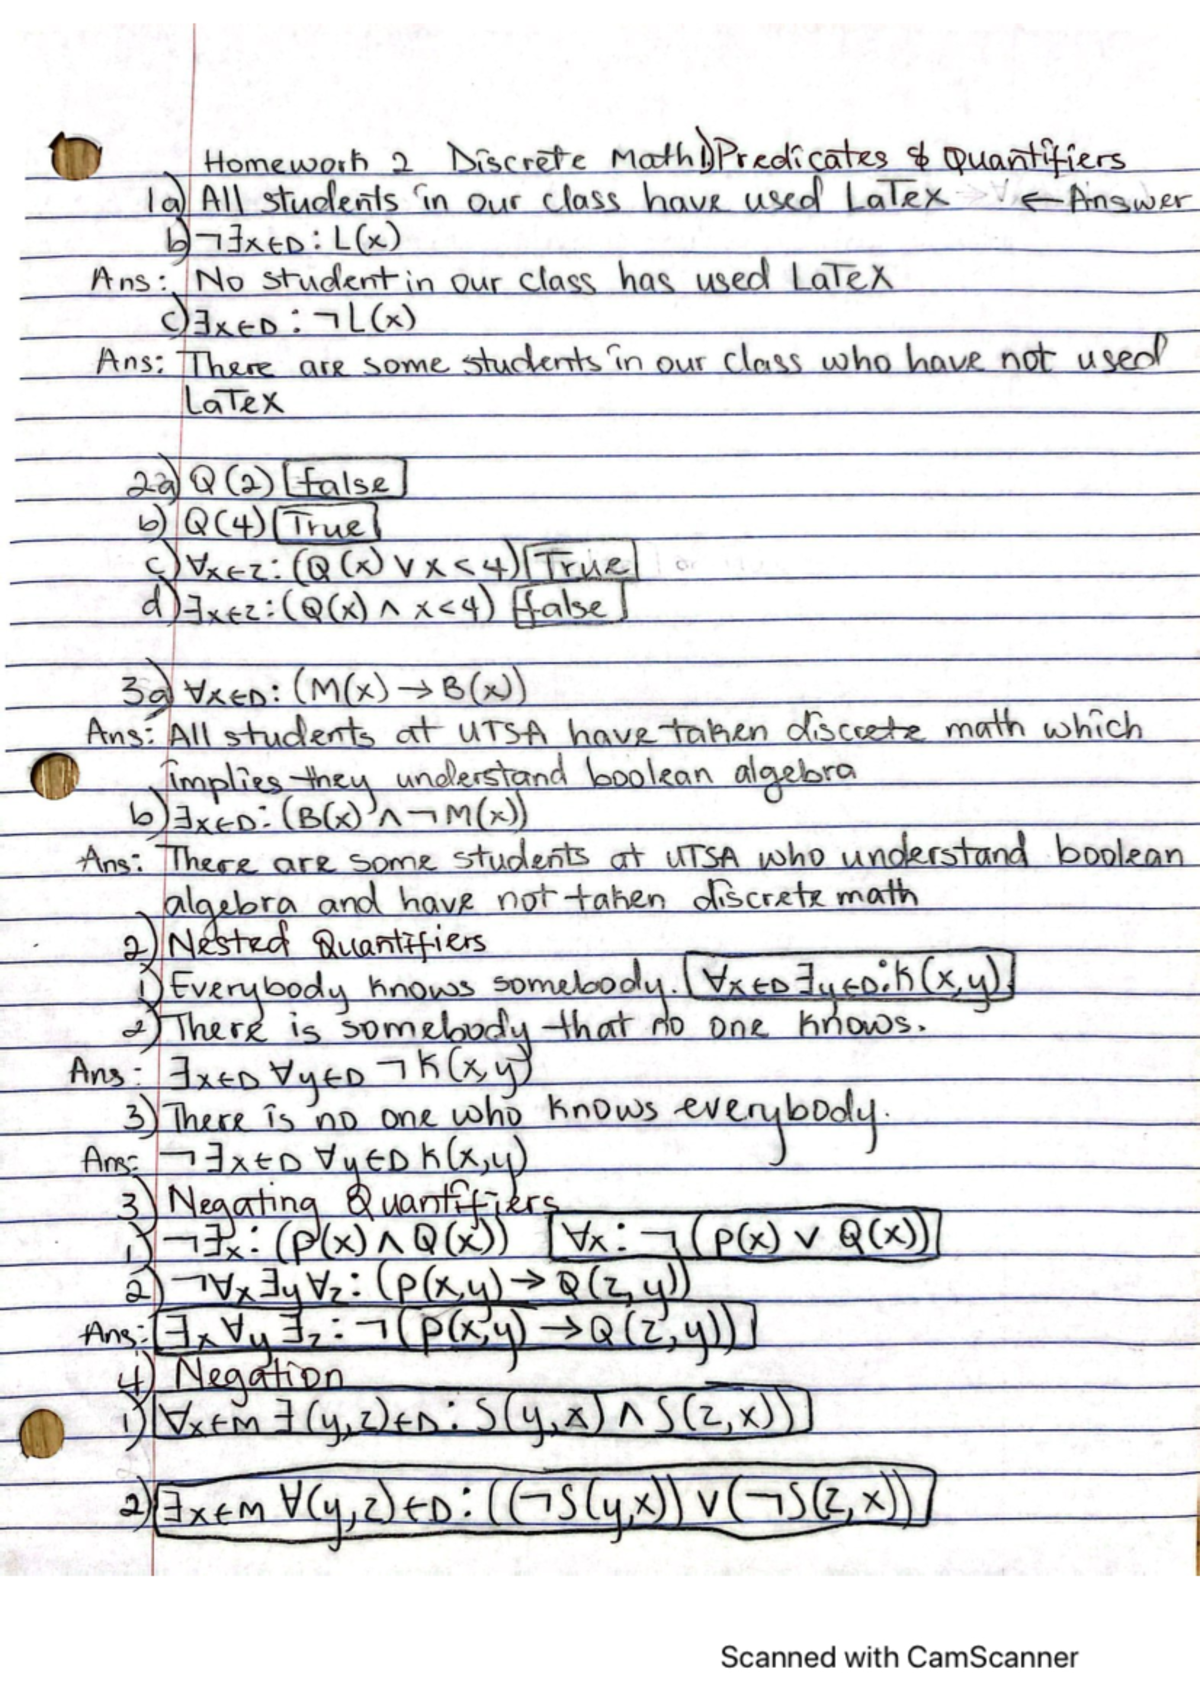 Homework 2 Discrete Math 1)Predicates & Quantifiers
1a) All students in our class have used LaTex ← Answer
b) ¬∃x∈D : L(x)
Ans: No student in our class has used LaTeX
c) ∃x∈D : ¬L(x)
Ans: There are some students in our class who have not used
LaTeX
2a) Q(2) False
b) Q(4) True
c) ∀x∈Z: (Q(x) ∨ x<4) True
d) ∃x∈Z: (Q(x) ∧ x<4) false
3a) ∀x∈D: (M(x) → B(x))
Ans: All students at UTSA have taken discrete math which
implies they understand boolean algebra
b) ∃x∈D: (B(x) ∧ ¬M(x))
Ans: There are some students at UTSA who understand boolean
algebra and have not taken discrete math
2) Nested Quantifiers
1) Everybody knows somebody. ∀x∈D ∃y∈D: K(x,y)
2) There is somebody that no one knows.
Ans: ∃x∈D ∀y∈D ¬K(x,y)
3) There is no one who knows everybody.
Ans: ¬∃x∈D ∀y∈D K(x,y)
3) Negating Quantifiers
1) ¬∃x: (P(x) ∧ Q(x)) ∀x: ¬(P(x) ∨ Q(x))
2) ¬∀x ∃y ∀z: (P(x,y) → Q(z,y))
Ans: ∃x ∀y ∃z: ¬(P(x,y) → Q(z,y))
4) Negation
1) ∀x∈M ∃(y,z)∈D: S(y,x) ∧ S(z,x))
2) ∃x∈M ∀(y,z)∈D: ((¬S(y,x)) ∨ (¬S(z,x))
Scanned with CamScanner